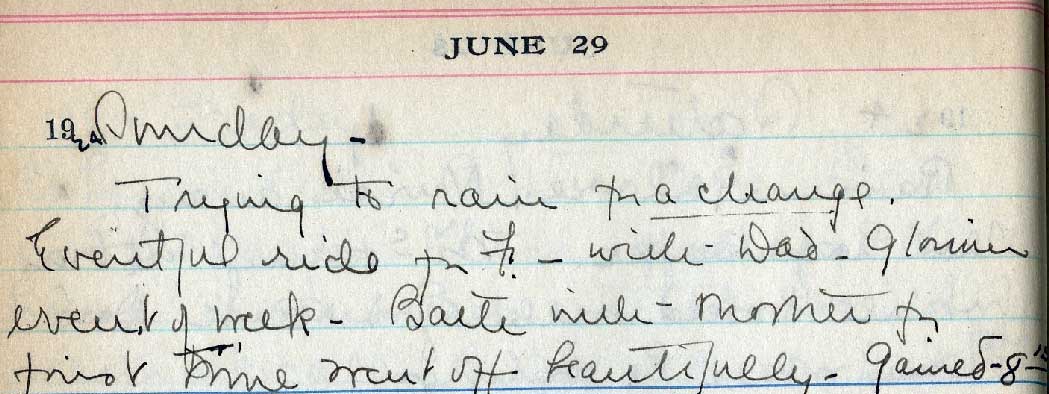 JUNE 29
1924 Sunday -
Trying to rain for a change.
Eventful ride for F. - with Dad - Glorious
event of week - Bath with Mother for
first time went off beautifully - Gained - 8